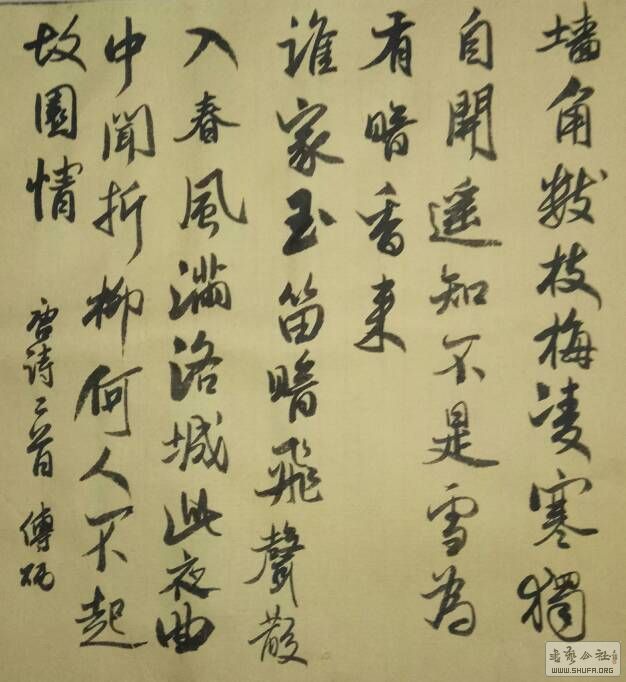 墙角数枝梅凌寒獨
自開遥知不是雪為
有暗香来
誰家玉笛暗飛聲散
入春風满洛城此夜曲
中聞折柳何人不起
故園情
唐诗二首 傅炳
书艺公社
WWW.SHUFA.ORG